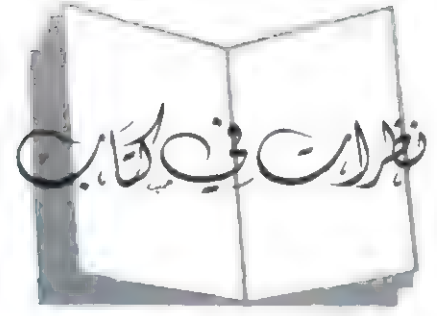 نظرات في كتاب